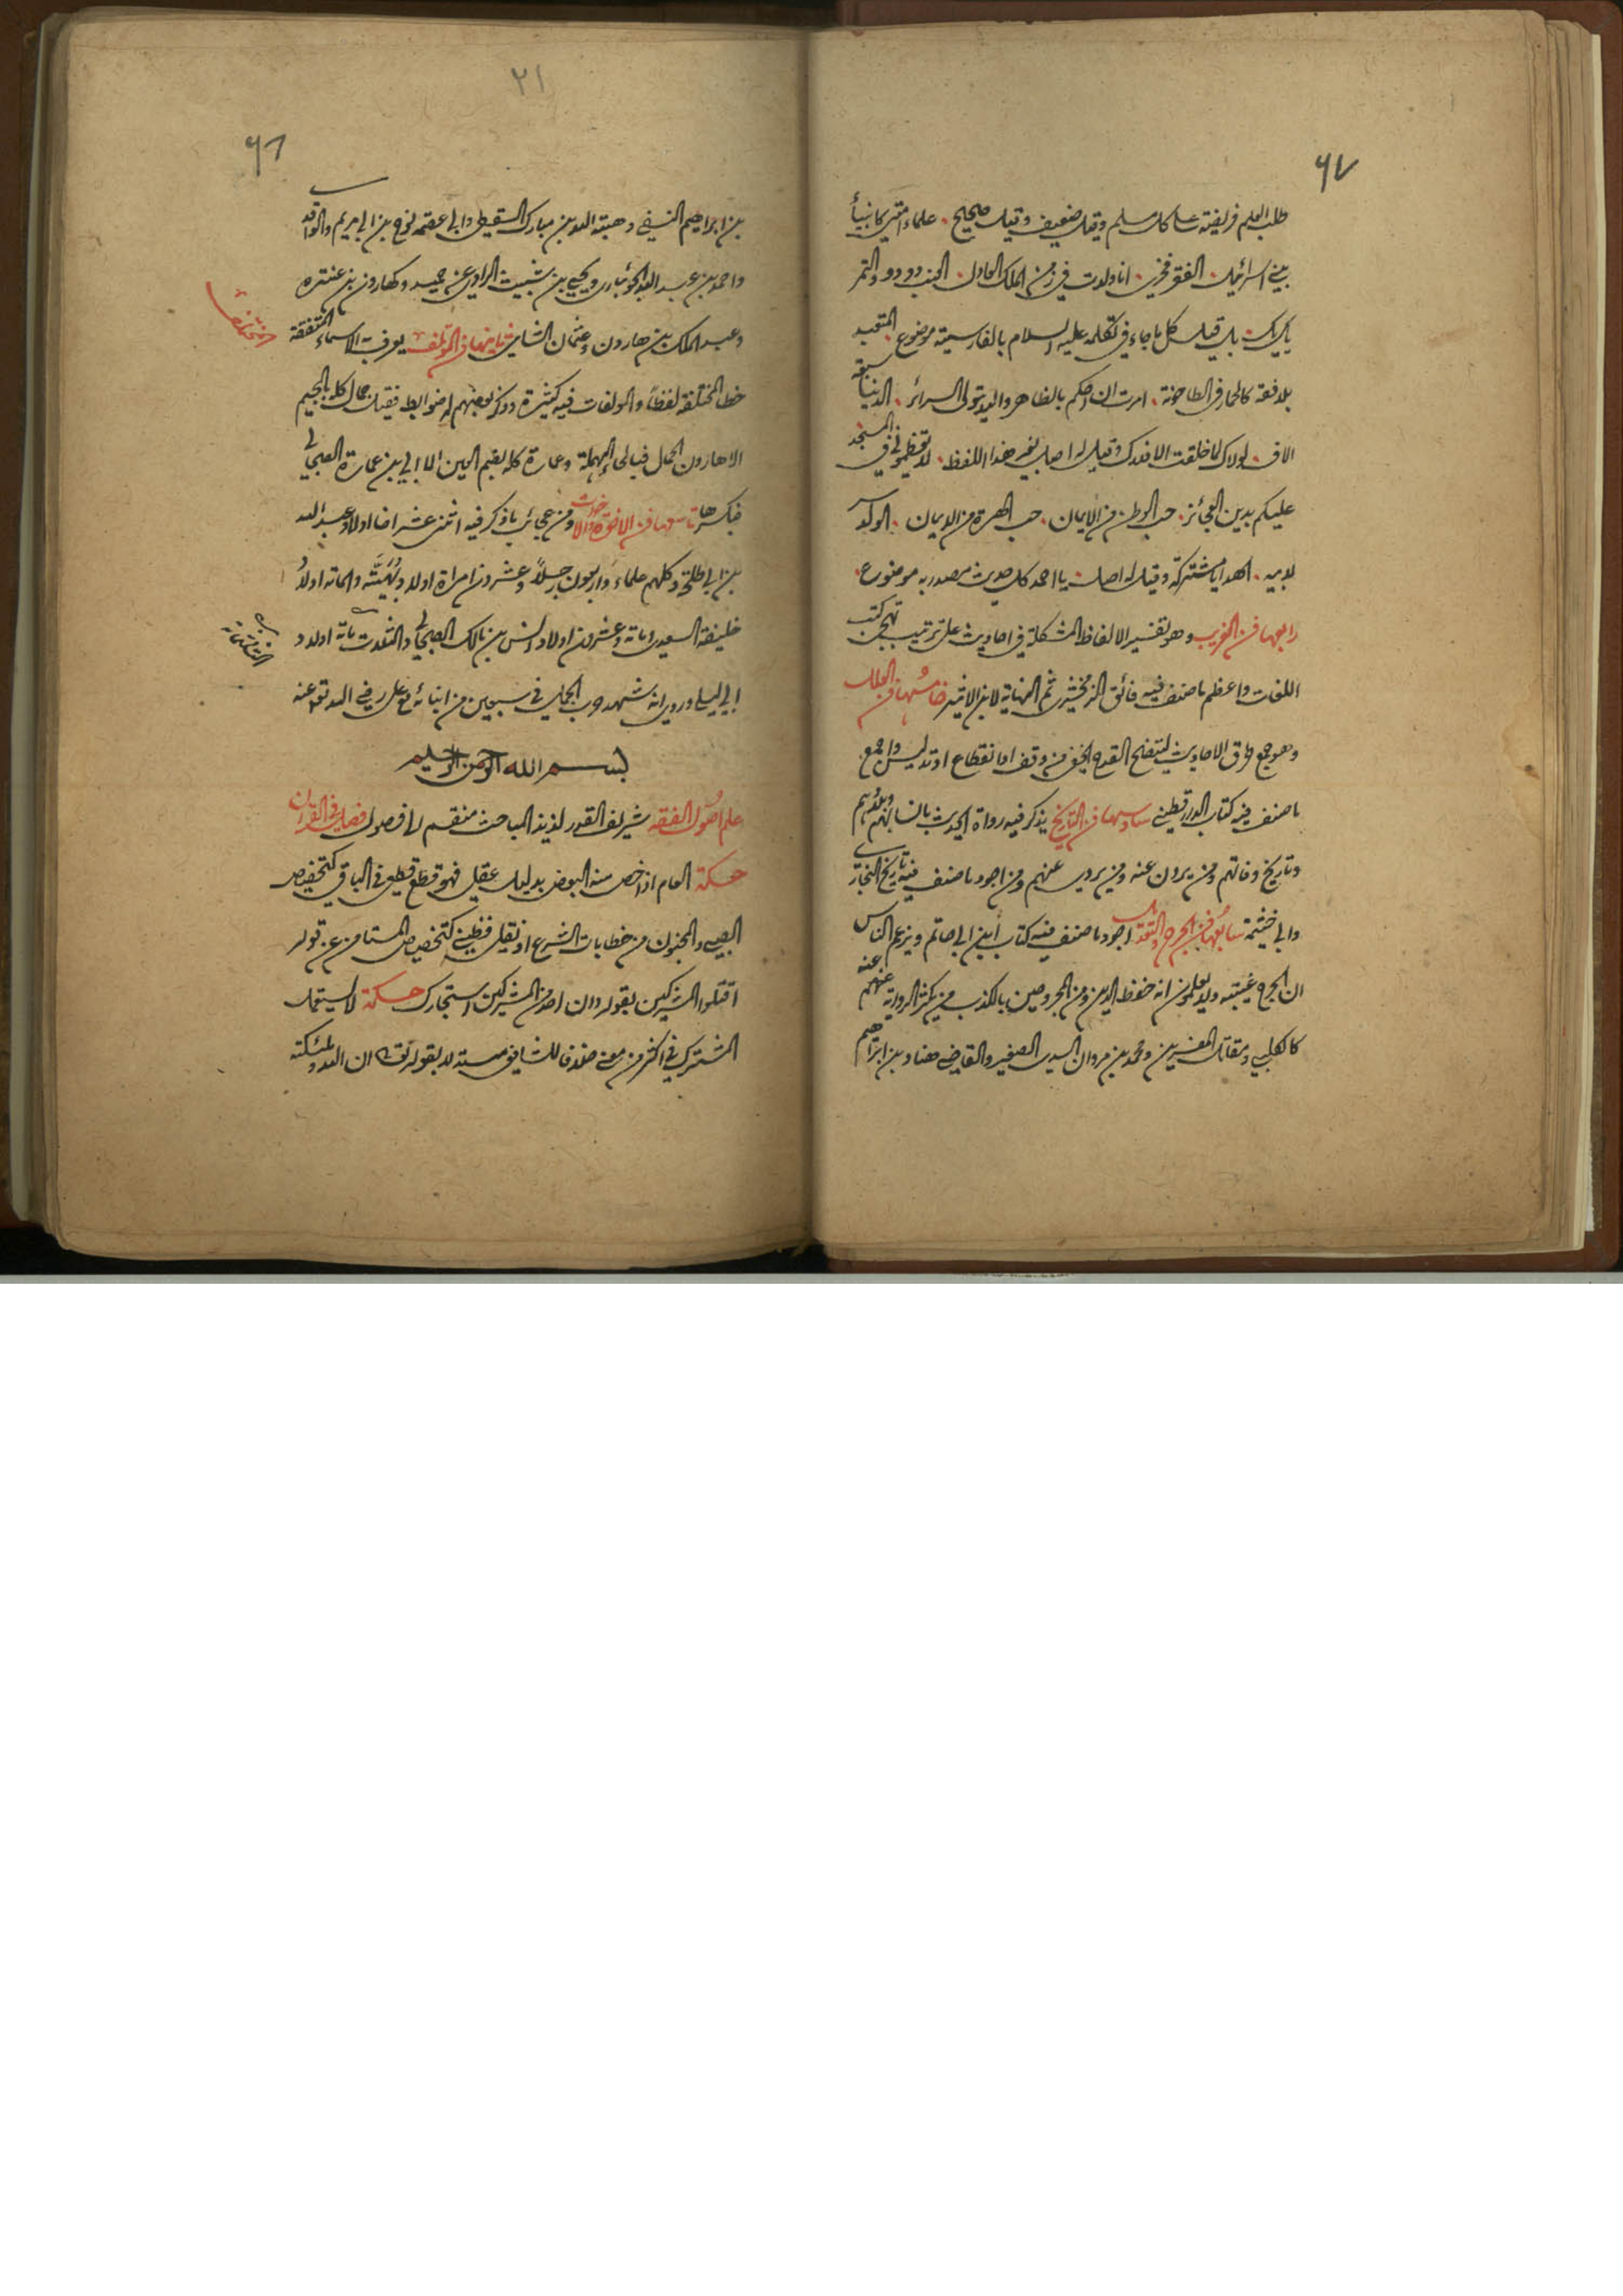 ٦٧
طلب العلم فريضة على كل مسلم وقيل ضعيف وقيل صحيح · علماء امتي كانبياء
بني اسرائيل · الفقر فخري · انا ولدت في زمن الملك العادل · العنب دو دو والتمر
يك يك · بل قيل كل ما جاء في تكلمه عليه السلام بالفارسية موضوع · المتعبد
بلا فقه كالحمار في الطاحونة · امرت ان احكم بالظاهر والله يتولى السرائر · الدنيا سبعة
الاف · لولاك لما خلقت الافلاك وقيل له اصل بغير هذا اللفظ · لا تعظموني في المسجد
عليكم بدين العجائز · حب الوطن من الايمان · حب الهرة من الايمان · الولد سر
لابيه · الهدايا مشتركة وقيل له اصل · يا احمد كل حديث مصدر به موضوع ·
رابعها فن الغريب وهو تفسير الالفاظ المشكلة في احاديث على ترتيب نهج كتب
اللغات واعظم ما صنف فيه فائق الزمخشري ثم النهاية لابن الاثير خامسها فن العلل
وهو جمع طرق الاحاديث ليتضح القدح الخفي من وقف او انقطاع او تدليس واجمع
ما صنف فيه كتاب الدارقطني سادسها فن التاريخ يذكر فيه رواة الحديث بانسابهم وبلادهم
وتاريخ وفاتهم ومن يروون عنه ومن يروي عنهم ومن اجود ما صنف فيه تاريخ البخاري
وابي خيثمة سابعها فن الجرح والتعديل اجود ما صنف فيه كتاب ابن ابي حاتم ويزعم الناس
ان الجرح غيبة ولا يعلمون انه حفظ الدين ومن المجروحين بالكذب من يكثر الرواية عنه منهم
كالكلبي ومقاتل المفسرين ومحمد بن مروان السدي الصغير والقاضي هناد بن ابراهيم
٢١
٦٦
بن ابراهيم النسفي وهبة الله بن مبارك السقطي وابي عصمة نوح بن ابي مريم والواقدي
واحمد بن عبد الله الجوئباري ويحيى بن شبيت الراوي عن حميد وكهارون بن عنترة
وعبد الملك بن هارون وعثمان الشامي ثامنها فن المؤتلف يعرف به الاسماء المتفقة
والمختلف
خطا المختلفة لفظا والمولفات فيه كثيرة وذكر بعضهم له ضوابط فقيل جمال كله بالجيم
الا هارون الحمال فبالحاء المهملة وعمارة كله بضم العين الا ابي بن عمارة الصحابي
فبكسرها تاسعها فن الاخوة والاخوات ومن عجائب ما ذكر فيه اثني عشر اخا اولاد عبد الله
بن ابي طلحة وكلهم علماء واربعون رجلا وعشرون امراة اولاد والمائة اولاد
خليفة السعدي ومائة وعشرون اولاد انس بن مالك الصحابي والثلث مائة اولاد
ابي ليلى وروي انه شهد حرب الجمل في سبعين من ابنائه مع علي رضي الله تعالى عنه
بسم الله الرحمن الرحيم
علم اصول الفقه شريف القدر لذيذ المباحث منقسم الى فصول فصل في القرآن
حكمة العام اذا خص منه البعض بدليل عقل فهو قطع قطعي في الباقي كتخصيص
الصبي والمجنون من خطابات الشرع او بنقل فظني كتخصيص المستامن عن قوله
اقتلوا المشركين بقوله وان احد من المشركين استجارك حكمة لا يستعمل
المشترك في اكثر من معنى خلافا للشافعي مستدلا بقوله تعالى ان الله وملئكته